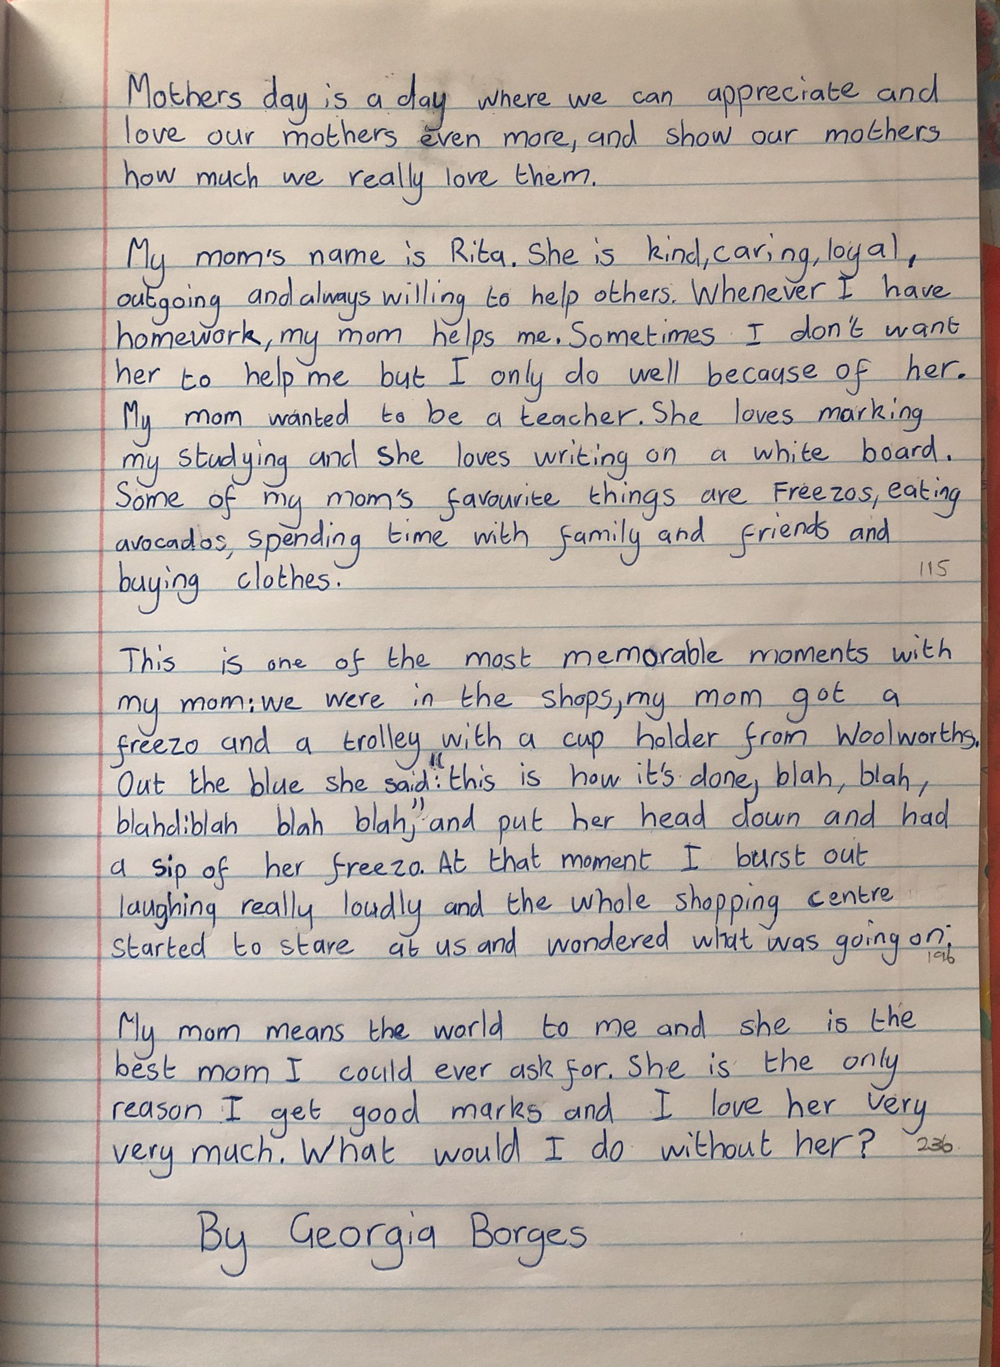 Mothers day is a day where we can appreciate and
love our mothers even more, and show our mothers
how much we really love them.
My mom's name is Rita. She is kind, caring, loyal,
outgoing and always willing to help others. Whenever I have
homework, my mom helps me. Sometimes I don't want
her to help me but I only do well because of her.
My mom wanted to be a teacher. She loves marking
my studying and she loves writing on a white board.
Some of my mom's favourite things are Freezos, eating
avocados, spending time with family and friends and
buying clothes.
115
This is one of the most memorable moments with
my mom: we were in the shops, my mom got a
freezo and a trolley with a cup holder from Woolworths.
Out the blue she said: "this is how it's done, blah, blah,
blahdiblah blah blah," and put her head down and had
a sip of her freezo. At that moment I burst out
laughing really loudly and the whole shopping centre
started to stare at us and wondered what was going on.
196
My mom means the world to me and she is the
best mom I could ever ask for. She is the only
reason I get good marks and I love her very
very much. What would I do without her? 236
By Georgia Borges